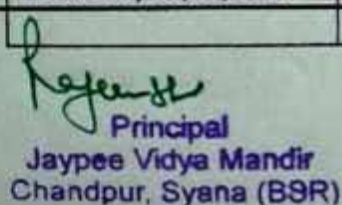 Principal
Jaypee Vidya Mandir
Chandpur, Syana (BSR)